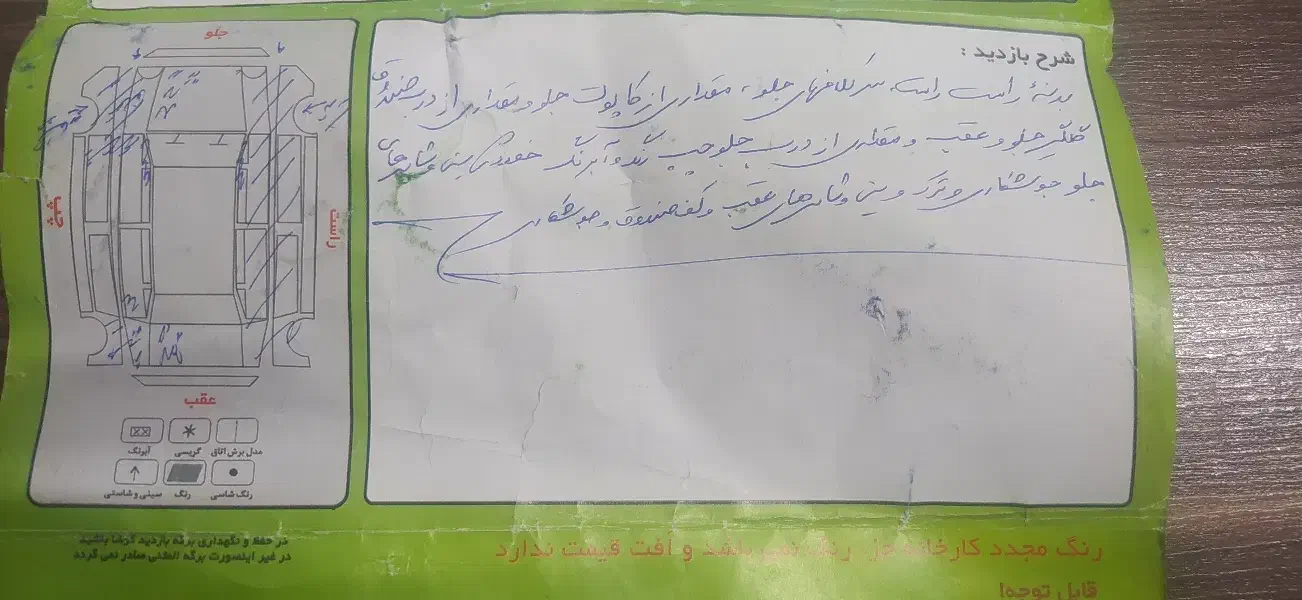 شرح بازدید :
بدنهٔ راست راست، سر گلافهای جلو، مقداری از کاپوت جلو و مقداری از درب صندوق
گلگیر جلو و عقب و مقداری از درب جلو چپ رنگ و آبرنگ خوردگی سینی و شاسی‌های
جلو جوشکاری و ترک و سینی و شاسی‌های عقب و کف صندوق و جوشکاری
جلو
چپ
راست
عقب
مدل برش اتاق
گریسی
آبرنگ
رنگ شاسی
رنگ
سینی و شاسی
در حفظ و نگهداری برگه بازدید کوشا باشید
در غیر اینصورت برگه المثنی صادر نمی گردد
رنگ مجدد کارخانه جزء رنگ نمی باشد و افت قیمت ندارد
قابل توجه!